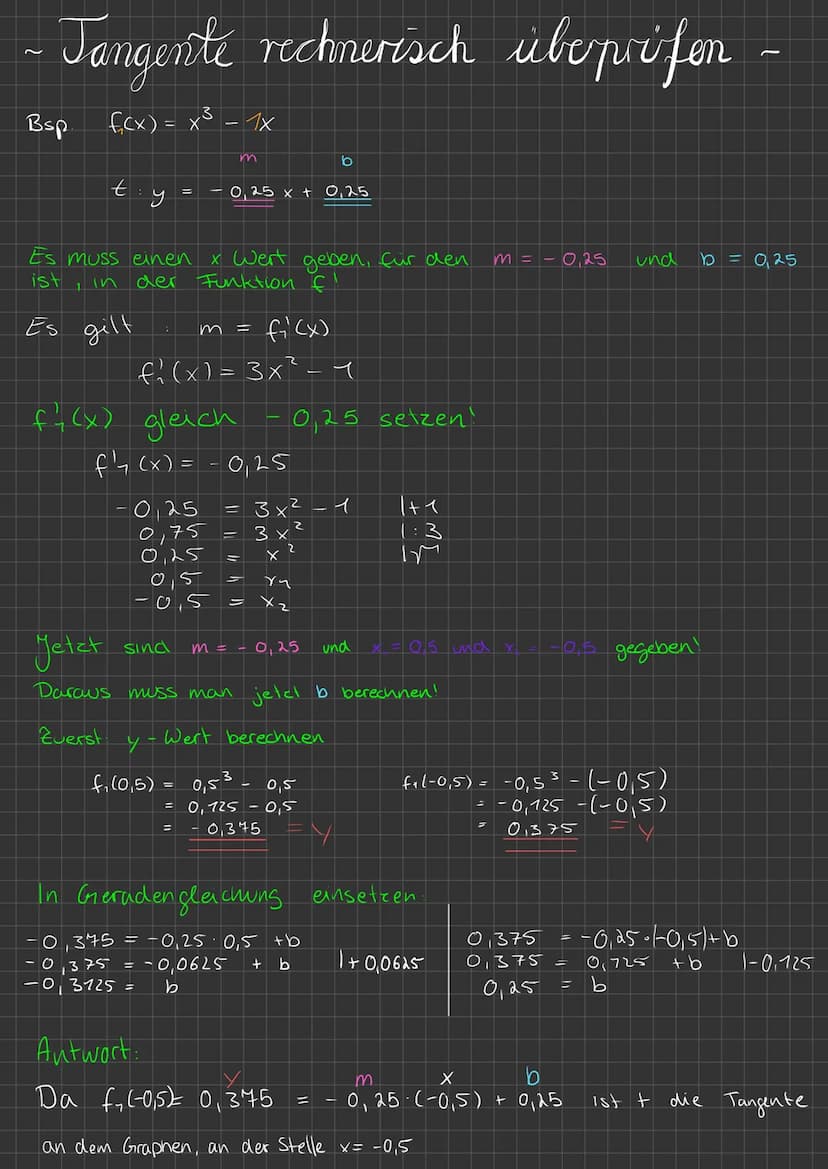 ~ Tangente rechnerisch überprüfen ~
Bsp. f₁(x) = x³ - 1x
m b
t : y = - 0,25 x + 0,25
Es muss einen x Wert geben, für den m = - 0,25 und b = 0,25
ist, in der Funktion f!
Es gilt : m = f₁'(x)
f₁'(x) = 3x² - 1
f₁'(x) gleich - 0,25 setzen!
f'₁(x) = - 0,25
-0,25 = 3x² - 1 |+1
0,75 = 3x² |:3
0,25 = x² |√
0,5 = x₁
-0,5 = x₂
Jetzt sind m = - 0,25 und x = 0,5 und x₂ = -0,5 gegeben!
Daraus muss man jetzt b berechnen!
Zuerst y-Wert berechnen
f₁(0,5) = 0,5³ - 0,5
= 0,125 - 0,5
= - 0,375 = y
f₁(-0,5) = -0,5³ - (-0,5)
= -0,125 -(-0,5)
= 0,375 = y
In Geradengleichung einsetzen:
-0,375 = -0,25 · 0,5 +b
-0,375 = -0,0625 + b |+0,0625
-0,3125 = b
0,375 = -0,25·(-0,5)+b
0,375 = 0,125 +b |-0,125
0,25 = b
Antwort:
y m x b
Da f₁(-0,5)= 0,375 = - 0,25·(-0,5) + 0,25 ist t die Tangente
an dem Graphen, an der Stelle x= -0,5